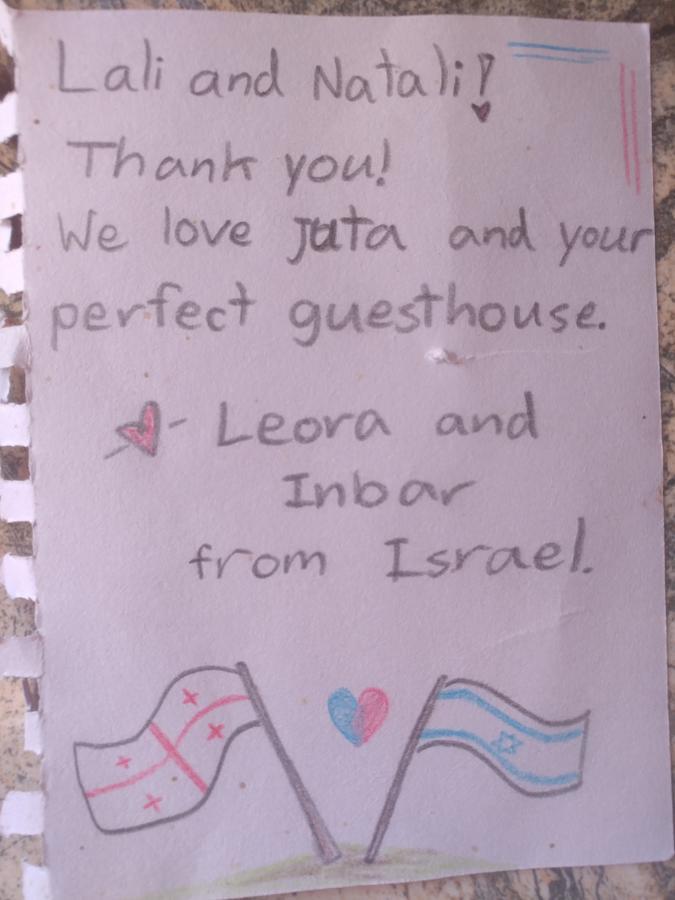 Lali and Natali!
Thank you!
We love Juta and your
perfect guesthouse.
- Leora and
Inbar
from Israel.